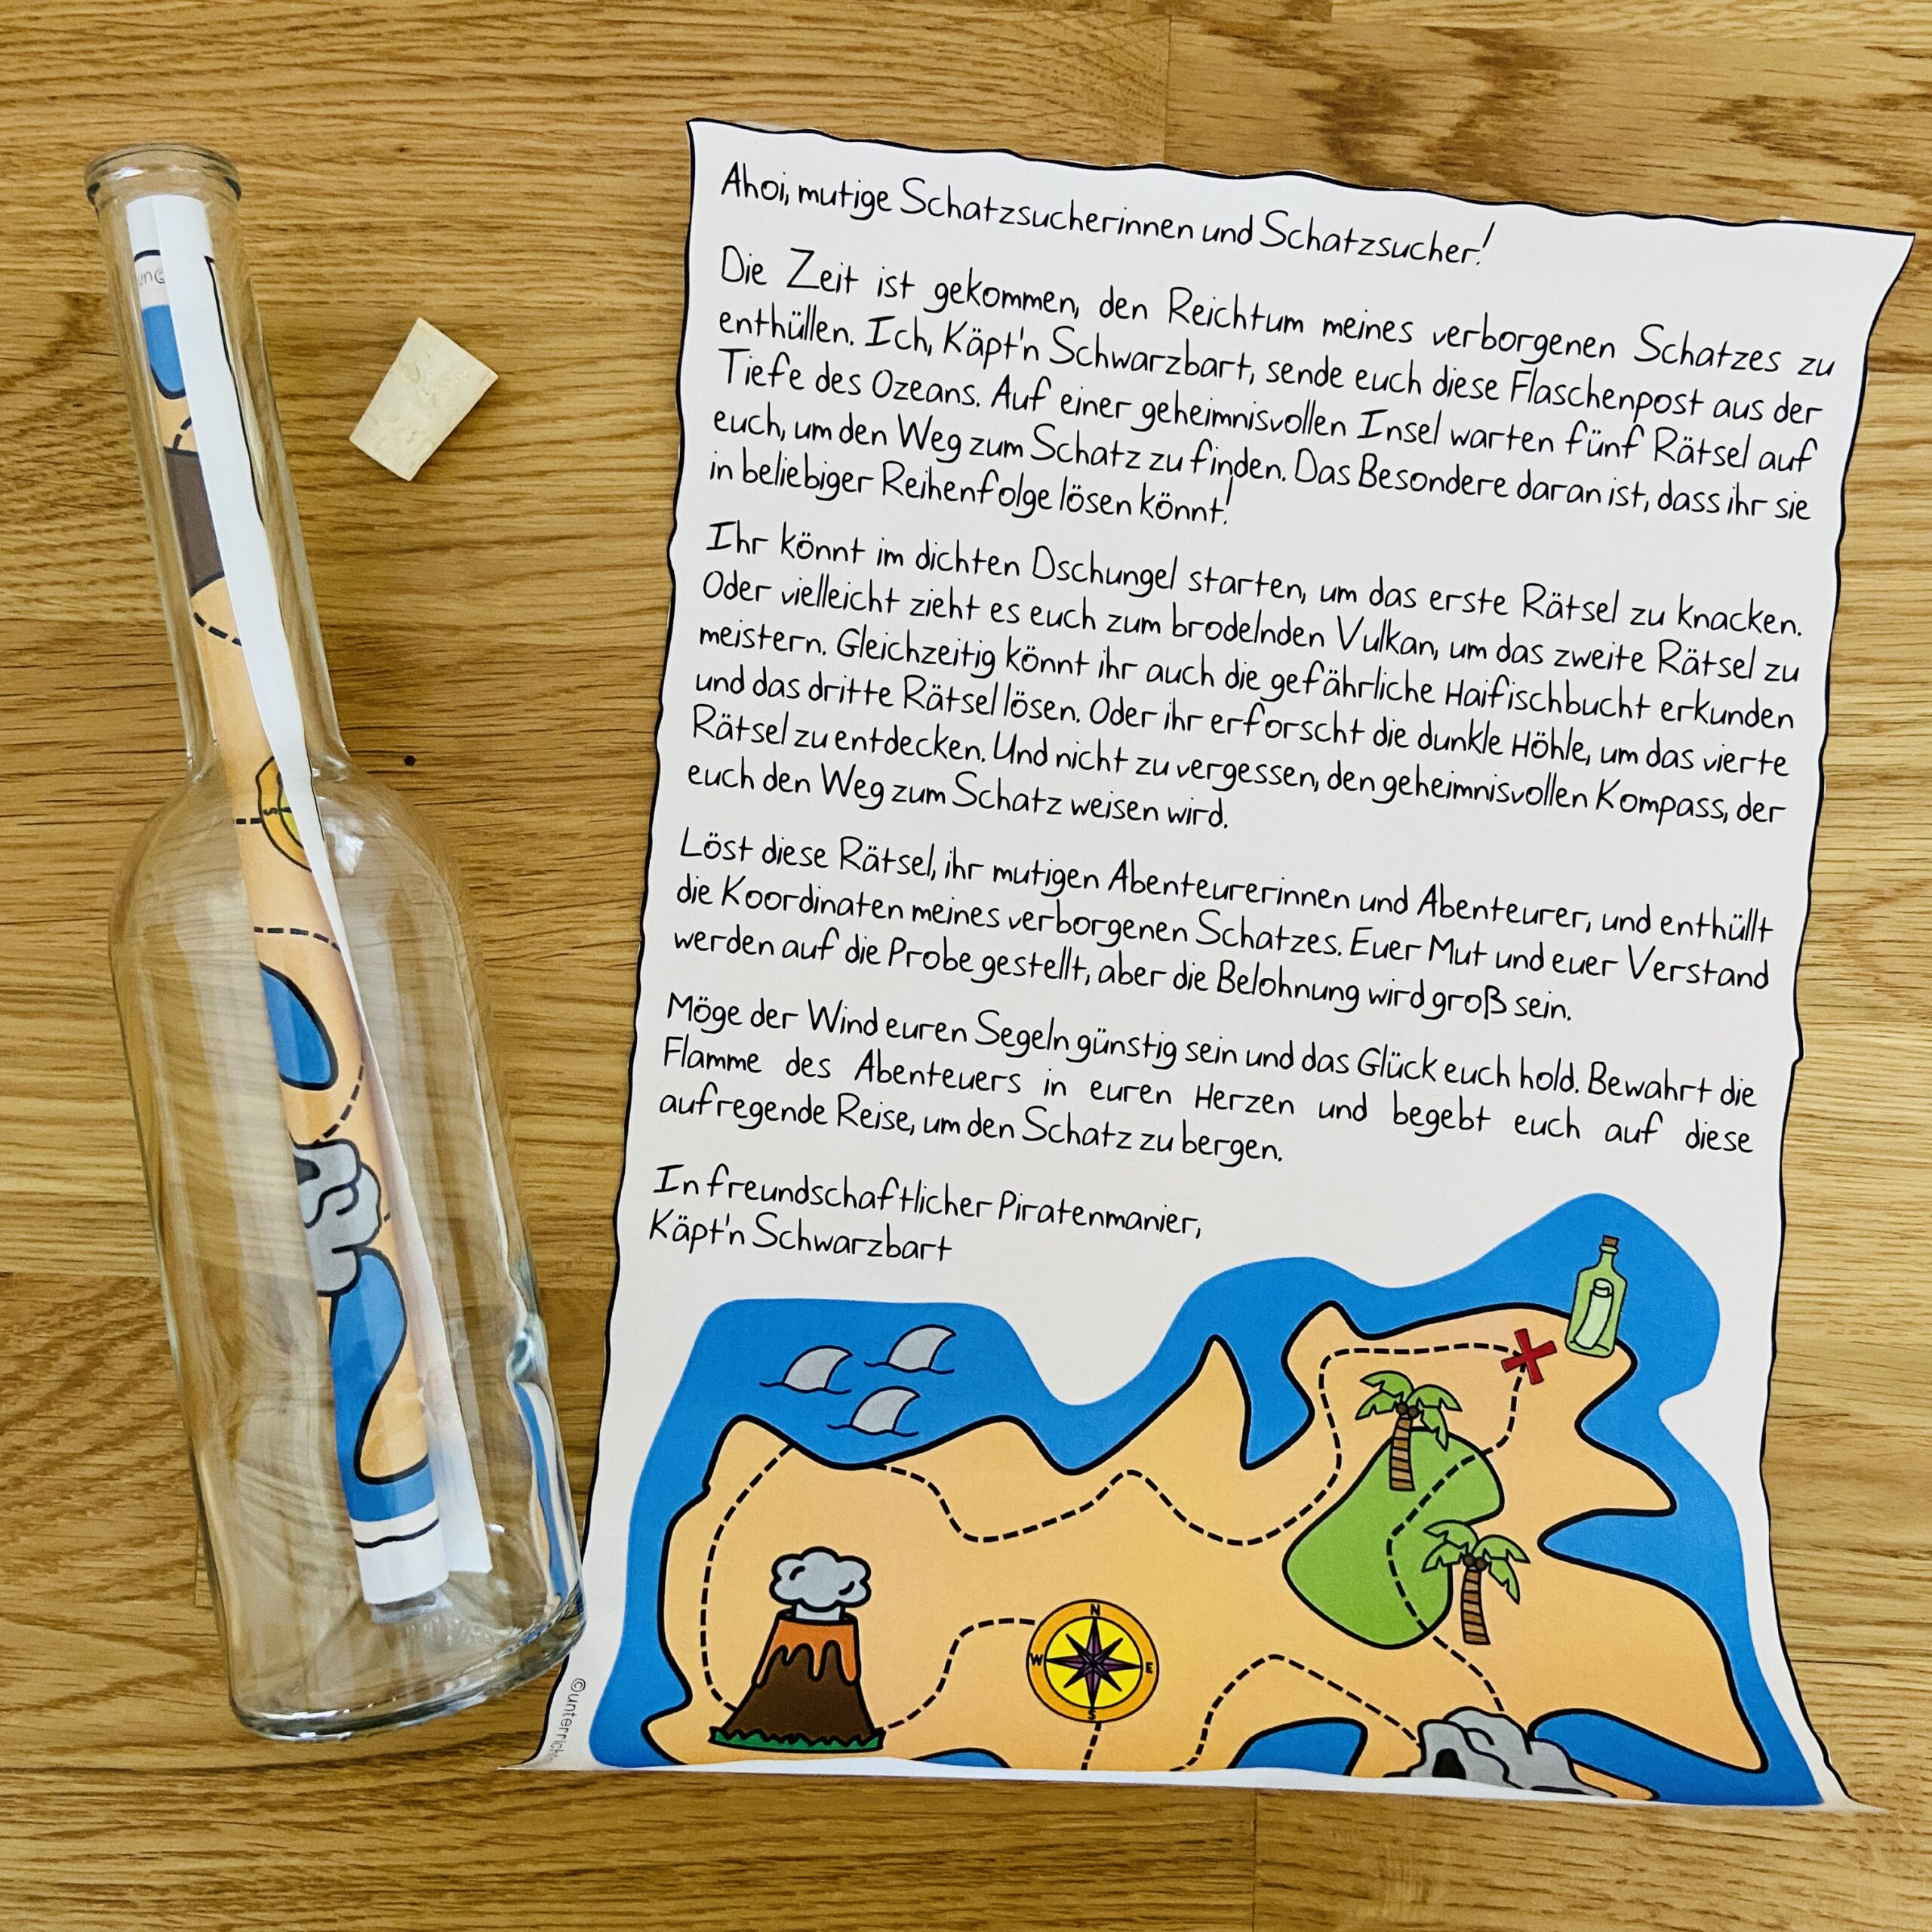 Ahoi, mutige Schatzsucherinnen und Schatzsucher!
Die Zeit ist gekommen, den Reichtum meines verborgenen Schatzes zu
enthüllen. Ich, Käpt'n Schwarzbart, sende euch diese Flaschenpost aus der
Tiefe des Ozeans. Auf einer geheimnisvollen Insel warten fünf Rätsel auf
euch, um den Weg zum Schatz zu finden. Das Besondere daran ist, dass ihr sie
in beliebiger Reihenfolge lösen könnt!
Ihr könnt im dichten Dschungel starten, um das erste Rätsel zu knacken.
Oder vielleicht zieht es euch zum brodelnden Vulkan, um das zweite Rätsel zu
meistern. Gleichzeitig könnt ihr auch die gefährliche Haifischbucht erkunden
und das dritte Rätsel lösen. Oder ihr erforscht die dunkle Höhle, um das vierte
Rätsel zu entdecken. Und nicht zu vergessen, den geheimnisvollen Kompass, der
euch den Weg zum Schatz weisen wird.
Löst diese Rätsel, ihr mutigen Abenteurerinnen und Abenteurer, und enthüllt
die Koordinaten meines verborgenen Schatzes. Euer Mut und euer Verstand
werden auf die Probe gestellt, aber die Belohnung wird groß sein.
Möge der Wind euren Segeln günstig sein und das Glück euch hold. Bewahrt die
Flamme des Abenteuers in euren Herzen und begebt euch auf diese
aufregende Reise, um den Schatz zu bergen.
In freundschaftlicher Piratenmanier,
Käpt'n Schwarzbart
N
W
E
S